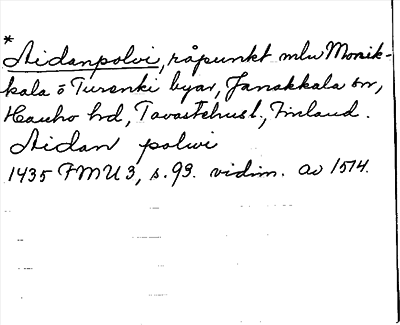 *
Aidanpolvi, råpunkt mlu Monik-
kala o Turenki byar, Janakkala sn,
Hauho hd, Tavastehus l., Finland.
Aidan polwi
1435 FMU 3, s. 99. vidim. av 1514.